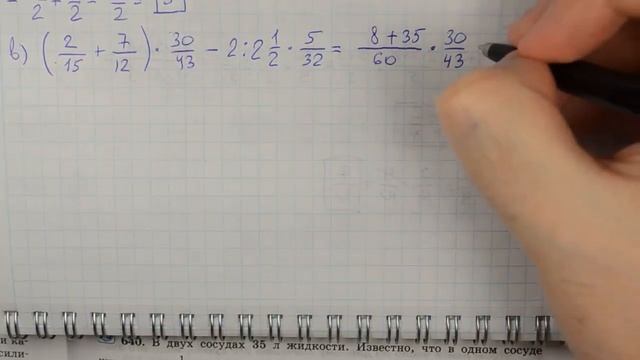 в) (2/15 + 7/12) · 30/43 − 2 : 2 1/2 · 5/32 = (8 + 35)/60 · 30/43
640. В двух сосудах 35 л жидкости. Известно, что в одном сосуде